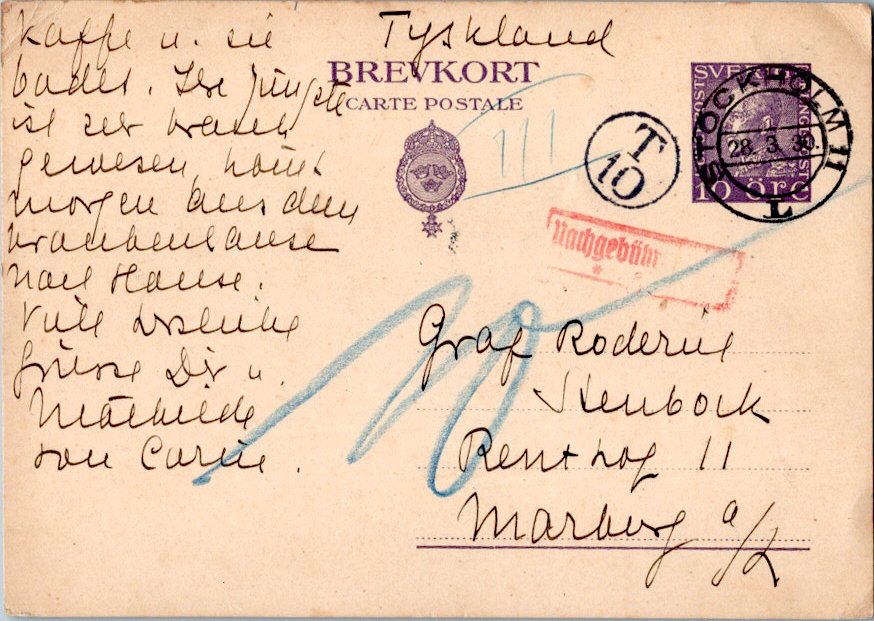 Tyskland
BREVKORT
CARTE POSTALE
SVERIGE
10 ÖRE
STOCKHOLM 11
28. 3. 30.
L
T
10
Nachgebühr
Kaffe u. sie
badet. Der jüngste
ist sehr krank
gewesen, kommt
morgen aus dem
Krankenhause
nach Hause.
Viele herzliche
Grüsse Dir u.
Mathilde
von Carin.
Graf Roderich
Stenbock
Renthof 11
Marburg a/L